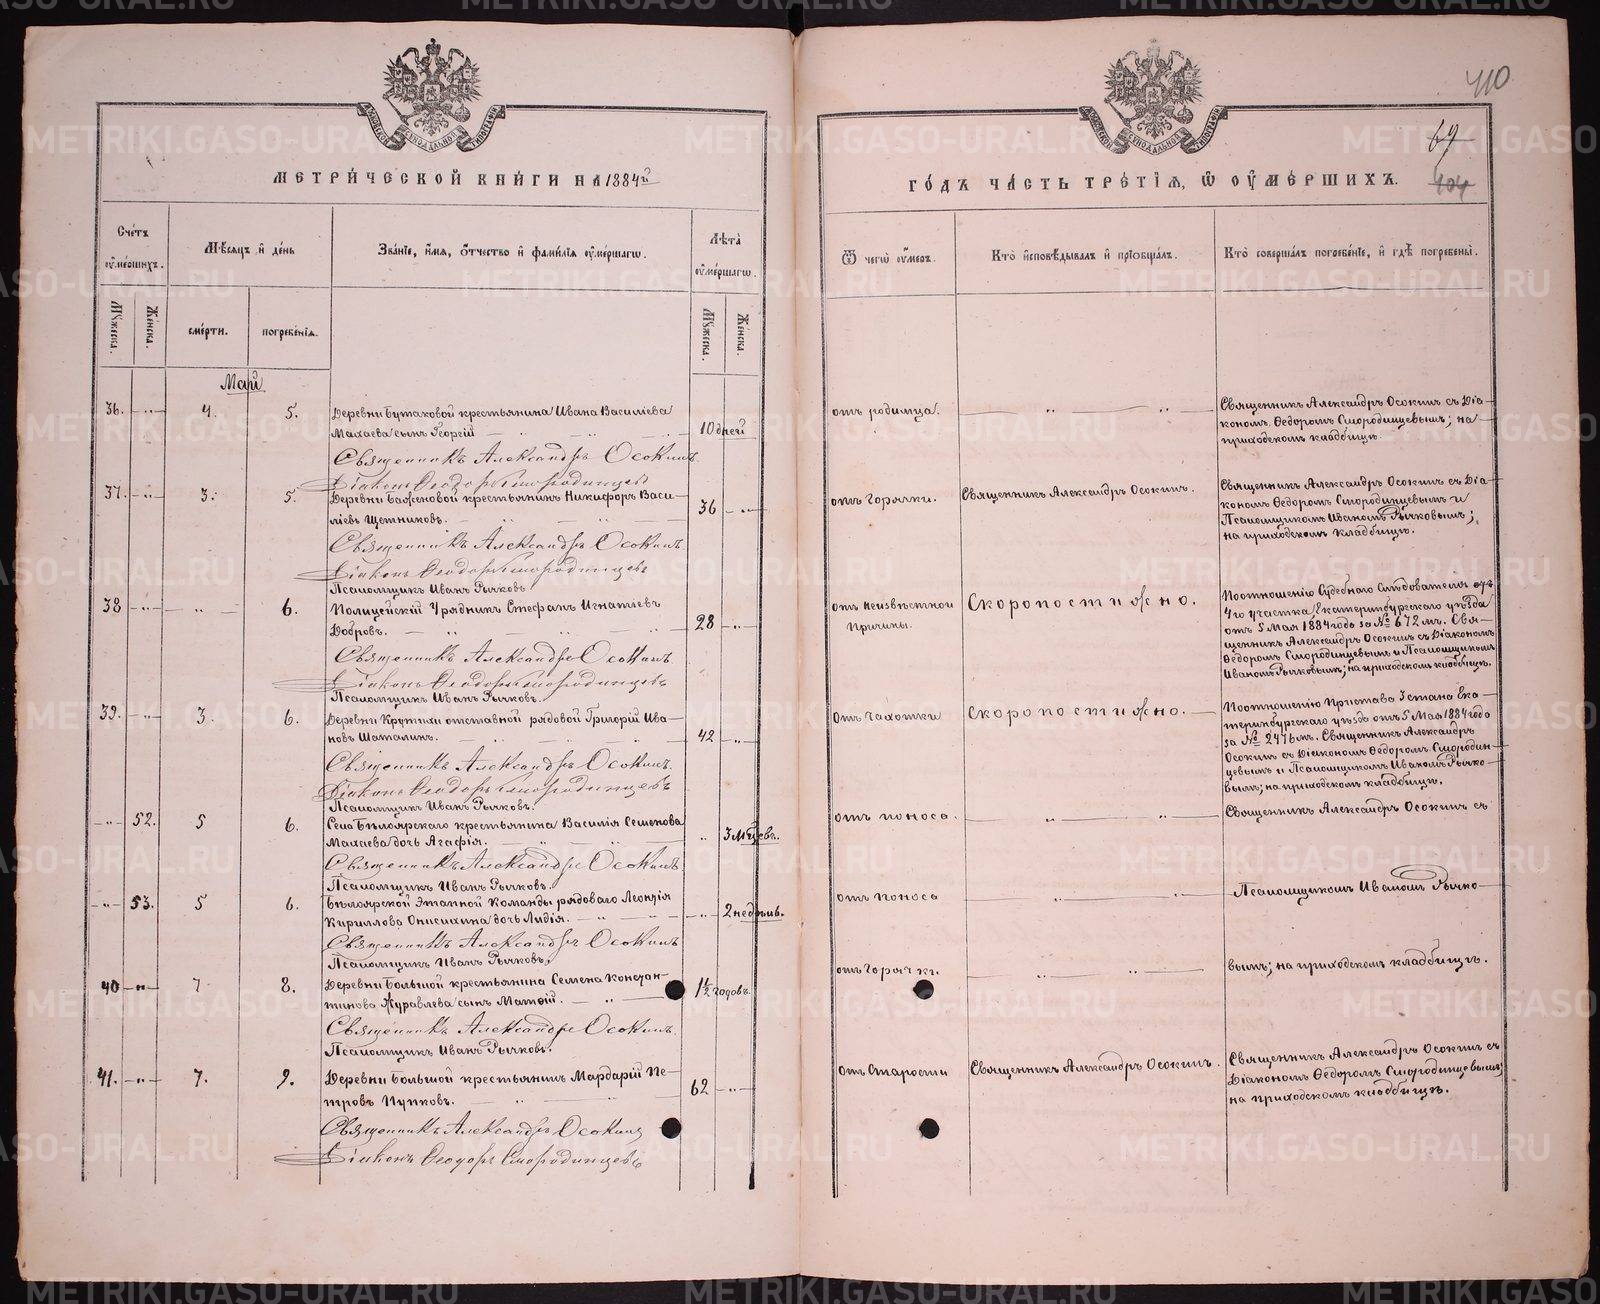 410
69
104
МЕТРИЧЕСКОЙ КНИГИ НА 1884й
ГОДЪ ЧАСТЬ ТРЕТІЯ, Ѿ ОУМЕРШИХЪ.
Счетъ оумершихъ.
Мѣсяцъ и день
Званіе, имя, отчество и фамилія оумершагѡ.
Лѣта оумершагѡ.
Ѿ чегѡ оумеръ.
Кто исповѣдывалъ и пріобщалъ.
Кто совершалъ погребеніе, и гдѣ погребены.
Мужеска.
Женска.
смерти.
погребенія.
Мужеска.
Женска.
Май
36.
4.
5.
Деревни Бутаковой крестьянина Ивана Василіева
Махаева сынъ Георгій
10 дней
отъ родимца.
Священникъ Александръ Осокинъ съ Діа-
кономъ Ѳедоромъ Смородинцевымъ; на
приходскомъ кладбищѣ.
Священникъ Александръ Осокинъ
Діаконъ Ѳеодоръ Смородинцевъ
37.
3.
5.
Деревни Баженовой крестьянинъ Никифоръ Васи-
ліевъ Щетниковъ.
36
отъ Горячки.
Священникъ Александръ Осокинъ.
Священникъ Александръ Осокинъ съ Діа-
кономъ Ѳедоромъ Смородинцевымъ и
Псаломщикомъ Иваномъ Рычковымъ;
на приходскомъ кладбищѣ.
Священникъ Александръ Осокинъ
Діаконъ Ѳеодоръ Смородинцевъ
Псаломщикъ Иванъ Рычковъ
38
6.
Полицейскій Урядникъ Стефанъ Игнатіевъ
Добровъ.
28
отъ неизвѣстной
причины.
Скоропостижно.
По отношенію Судебнаго Слѣдователя
4го участка Екатеринбургскаго уѣзда
отъ 5 Мая 1884 года за № 672 мъ. Свя-
щенникъ Александръ Осокинъ съ Діакономъ
Ѳедоромъ Смородинцевымъ и Псаломщикомъ
Иваномъ Рычковымъ; на приходскомъ кладбищѣ.
Священникъ Александръ Осокинъ
Діаконъ Ѳеодоръ Смородинцевъ
Псаломщикъ Иванъ Рычковъ.
39.
3.
6.
Деревни Крутихи отставной рядовой Григорій Ива-
новъ Шаталинъ.
42
отъ чахотки
Скоропостижно.
По отношенію Пристава 3 стана Ека-
теринбургскаго уѣзда отъ 5 Мая 1884 года
за № 2476 мъ. Священникъ Александръ
Осокинъ съ Діакономъ Ѳедоромъ Смородин-
цевымъ и Псаломщикомъ Иваномъ Рычко-
вымъ; на приходскомъ кладбищѣ.
Священникъ Александръ Осокинъ.
Діаконъ Ѳеодоръ Смородинцевъ
Псаломщикъ Иванъ Рычковъ.
52.
5
6.
Села Бѣлоярскаго крестьянина Василія Семенова
Махаева дочь Агафія.
3 мѣсецъ.
отъ поноса.
Священникъ Александръ Осокинъ съ
Священникъ Александръ Осокинъ
Псаломщикъ Иванъ Рычковъ.
53.
5
6.
Бѣлоярской Этапной Команды рядоваго Леонтія
Кириллова Онисихина дочь Лидія.
2 недѣль.
отъ поноса
Псаломщикомъ Иваномъ Рычко-
Священникъ Александръ Осокинъ
Псаломщикъ Иванъ Рычковъ.
40
7
8.
Деревни Большой крестьянина Семена Констан-
тинова Журавлева сынъ Матѳій.
1½ годовъ.
отъ Горячки.
вымъ; на приходскомъ кладбищѣ.
Священникъ Александръ Осокинъ.
Псаломщикъ Иванъ Рычковъ.
41.
7.
9.
Деревни Большой крестьянинъ Мардарій Пе-
тровъ Пупковъ.
62
отъ старости
Священникъ Александръ Осокинъ.
Священникъ Александръ Осокинъ съ
Діакономъ Ѳедоромъ Смородинцевымъ;
на приходскомъ кладбищѣ.
Священникъ Александръ Осокинъ
Діаконъ Ѳеодоръ Смородинцевъ
METRIKI.GASO-URAL.RU